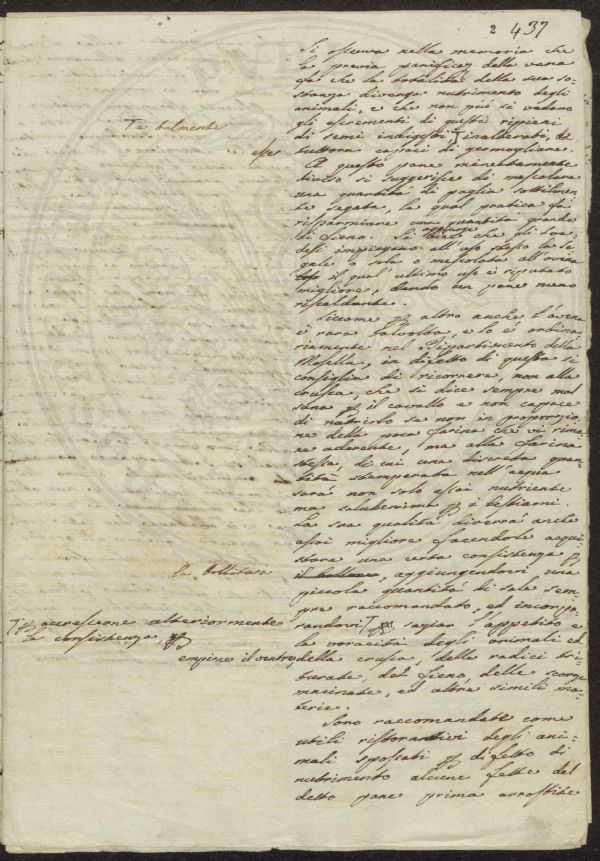 2 437
Si osserva nella memoria che
la previa panificaz. delle vena
fà che la totalità della sua so-
stanza divenga nutrimento degli
animali, e che non più si vedano
gli escrementi di questi ripieni
di semi indigesti
Ta talmente
tuttora capaci di germogliare.
A questo pane
diviso si suggerisce di mescolare
una quantità di paglia sottilmen-
te segata, la qual pratica fà
risparmiare una quantità grande
di fieno. Si che gli Sve-
desi impiegano all'uso stesso la se-
gale o sola o mescolata all'avena
il qual' ultimo uso è riputato
migliore, dando un pane meno
riscaldante.
Siccome altro anche l'avena
è rara talvolta, e lo è ordina-
riamente nel Dipartimento della
Mosella, in difetto di questa si
consiglia di ricorrere, non alla
crusca, che si dice sempre mal
sana il cavallo e non capace
di nutrirlo se non in proporzio-
ne della poca farina che vi rima-
ne aderente, ma alla farina
stessa, di cui una discreta quan-
tità stemperata nell'acqua
sarà non solo assai nutriente
ma saluberima i bestiami.
La sua qualità diverrà anche
assai migliore facendole acqui-
stare una certa consistenza
la bollitura
aggiungendovi una
piccola quantità di sale sem-
pre raccomandato, ed incorpo-
randovi saziar l'appetito e
T accrescerne ulteriormente
la consistenza,
la voracità degli animali ed
empirne il ventre, della crusca, delle radici tri-
turate, del fieno, delle scorze
macinate, ed altre simili ma-
terie.
Sono raccomandate come
utili ristorativi degli ani-
mali spossati difetto di
nutrimento alcune fette del
detto pane prima arrostite